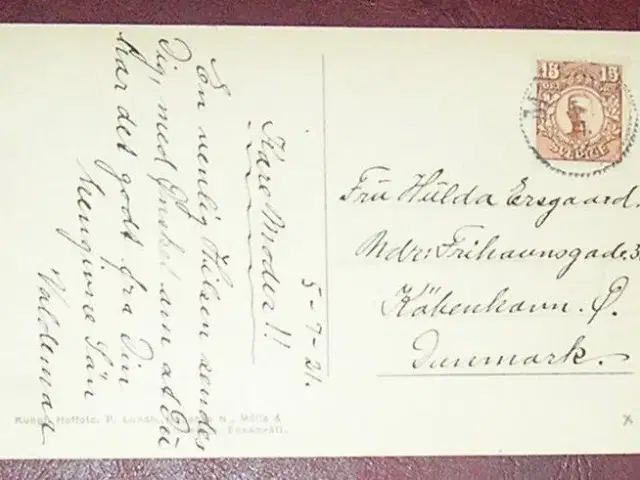 5-7-21.
Kære Moder!!
En venlig Hilsen sendes
Dig, med Ønsket om at Du
har det godt fra Din
hengivne Sön
Valdemar
15 15
ÖRE
SVERIGE
Fru Hulda Ersgaard.
Ndr: Frihavnsgade. 3
Köbenhavn. Ø.
Danmark.
Kungl. Hoffoto. P. Lundh, N., Mölle &